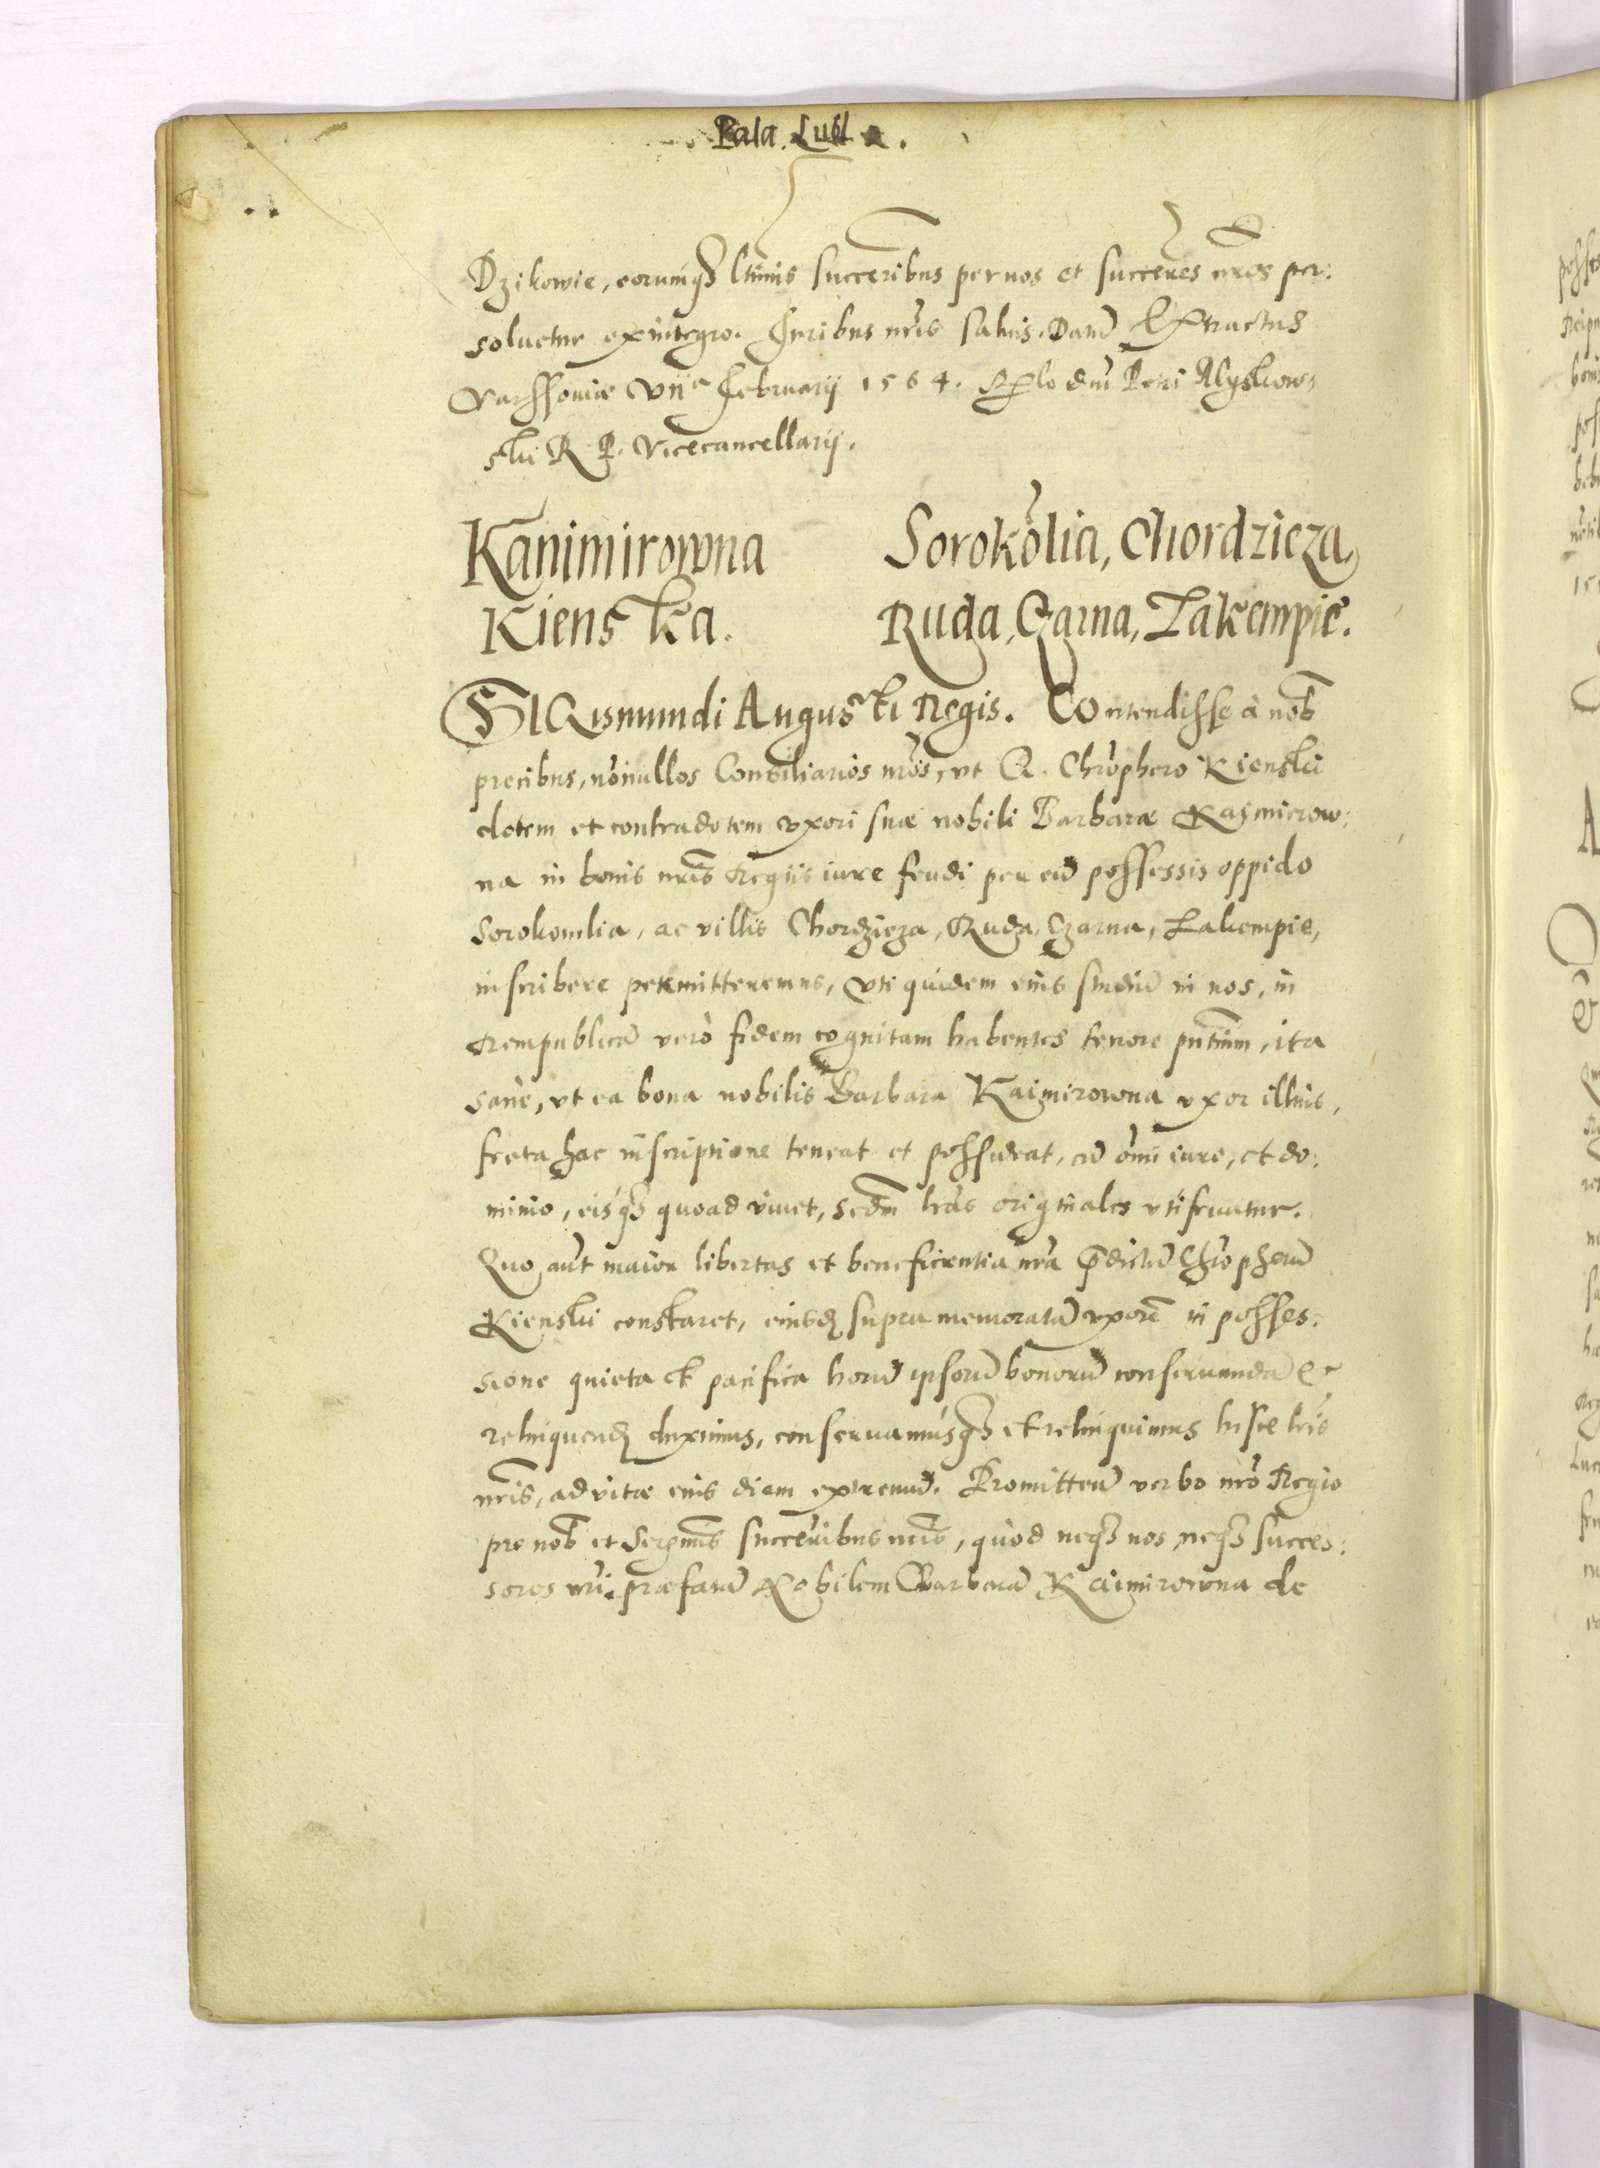 Pala. Lubl
Dzikowie, eorumq͗ ltimis succeribus per nos et succeres nr̃os per:
soluetur ex integro. Iuribus nr̃is saluis. Datũ Extractus
Varssoviæ VIIa February 1564. dni Petri Myskow,
ski R P. Vicecancellarij.
Kanimirowna Sorokõlia, Chordzieza,
Kienska. Ruda, Czarna, Lakempie.
SIGismundi Augusti Regis. Contendisse à nob̃
precibus, nõnullos Consiliarios nr̃os, vt G. Chrõphero Kienski
dotem et contradotem vxori suæ nobili Barbaræ Kazmierow:
na in bonis nr̃is Regiis iure feudi per eũ possessis oppido
Sorokomlia, ac villis Chordzieza, Ruda, Czarna, Lakempie,
inscribere permitteremus, Vti quidem eius studiũ in nos, in
Rempublicã verò fidem cognitam habentes tenore pñtium, ita
sanè, vt ea bona nobilis Barbara Kazimirowna vxor illius,
freta hac inscriptione teneat et possideat, cũ omĩ iure, et do:
minio, eisq͗ quoad viuet, secdm̃ lrãs originales vti fruatur.
Quo aũt maior libertas et beneficentia nr̃a p̃dictũ Chrõpherũ
Kienski constaret, eiusdẽ supra memoratã vxorẽ in posses:
sione quieta et pacifica horũ ipsorũ bonorũ conseruandã et
relinquendã duximus, conseruamusq͗ et relinquimus hisce lrĩs
nr̃is, ad vitæ eius diem extremũ. Promittentes verbo nr̃o Regio
pro nob̃ et Sereñmis succeribus nr̃is, quòd neq͗ nos, neq͗ succes:
sores nr̃i præfatã Nobilem Barbarã Kazimirowna de